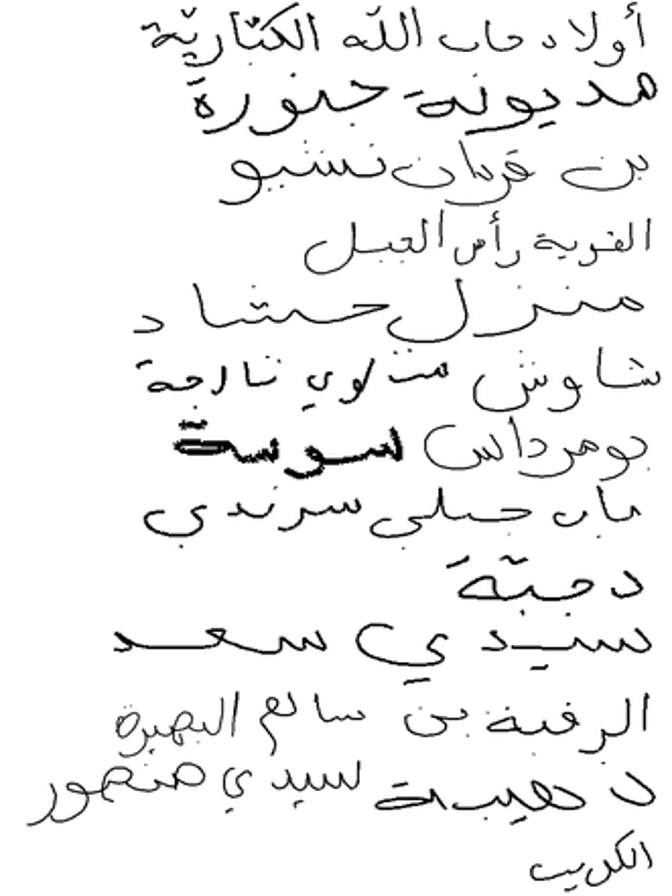 أولاد جاب الله الكتّاريّة
مديونة جنورة
بن قردان نشيو
القرية رأس الجبل
منزل حشاد
شاوش متلوي ثالجة
بومرداس سوسة
باب جبلي سرندي
دجبّة
سيدي سعد
الرقبة بن سالم
دهيبة سيدي منصور
الكريب